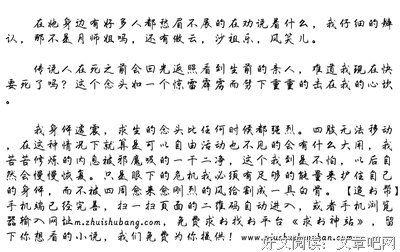 在她身边有好多人都愁眉不展的在劝说着什么，我仔细的辨
认，那不是月师姐吗，还有傲云，沙祖乐，风笑儿。
传说人在死之前会回光返照看到生前的亲人，难道我现在快
要死了吗？这个念头如一个惊雷霹雳而劈下重重的击在我的心坎
。
我身体遽震，求生的念头比任何时候都强烈。四肢无法移动
，在这种情况下就算是可以自由活动也不见的会有什么大用，我
苦苦修炼的内息被邪魔吸的一干二净，这个我到是不怕，以后自
然会慢慢恢复。只是眼下的危机我必须有足够的能量来护住自己
的身体，而不被四周愈来愈刚烈的风给割成一具白骨。【追书帮】
手机端已经完善，扫一扫页面的二维码自动进入，或者手机浏览
器输入网址m.zhuishubang.com，免费求书找书平台《求书神站》，留
下你想看的小说，我们免费为你提供！www.zhuishubang.com
好文阅读：文章吧网